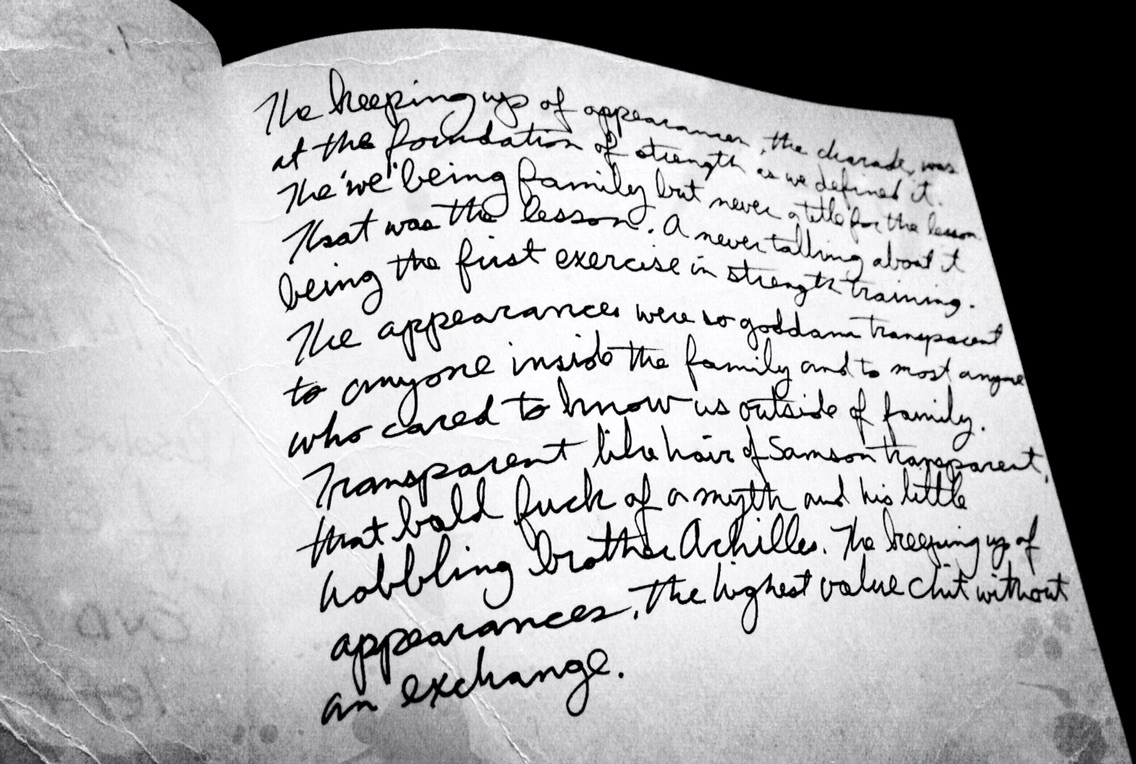 The keeping up of appearances, the charade, was
at the foundation of strength as we defined it.
The 'we' being family but never a title for the lesson.
That was the lesson. A never talking about it
being the first exercise in strength training.
The appearances were so goddamn transparent
to anyone inside the family and to most anyone
who cared to know us outside of family.
Transparent like hair of Samson transparent,
that bald fuck of a myth and his little
hobbling brother Achilles. The keeping up of
appearances. The highest value chit without
an exchange.